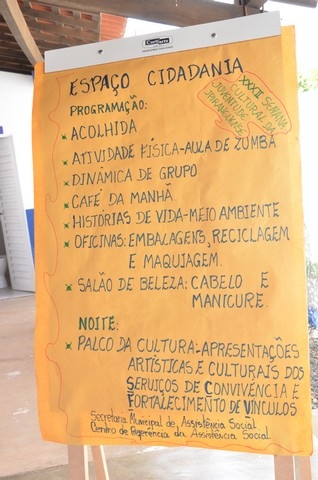 ESPAÇO CIDADANIA
XXXII SEMANA
CULTURAL DA
JUVENTUDE
PROGRAMAÇÃO:
ACOLHIDA
ATIVIDADE FÍSICA-AULA DE ZUMBA
DINÂMICA DE GRUPO
CAFÉ DA MANHÃ
HISTÓRIAS DE VIDA-MEIO AMBIENTE
OFICINAS: EMBALAGENS, RECICLAGEM
E MAQUIAGEM.
SALÃO DE BELEZA: CABELO E
MANICURE.
NOITE:
PALCO DA CULTURA-APRESENTAÇÕES
ARTÍSTICAS E CULTURAIS DOS
SERVIÇOS DE CONVIVÊNCIA E
FORTALECIMENTO DE VÍNCULOS
Secretaria Municipal de Assistência Social
Centro de Referência da Assistência Social